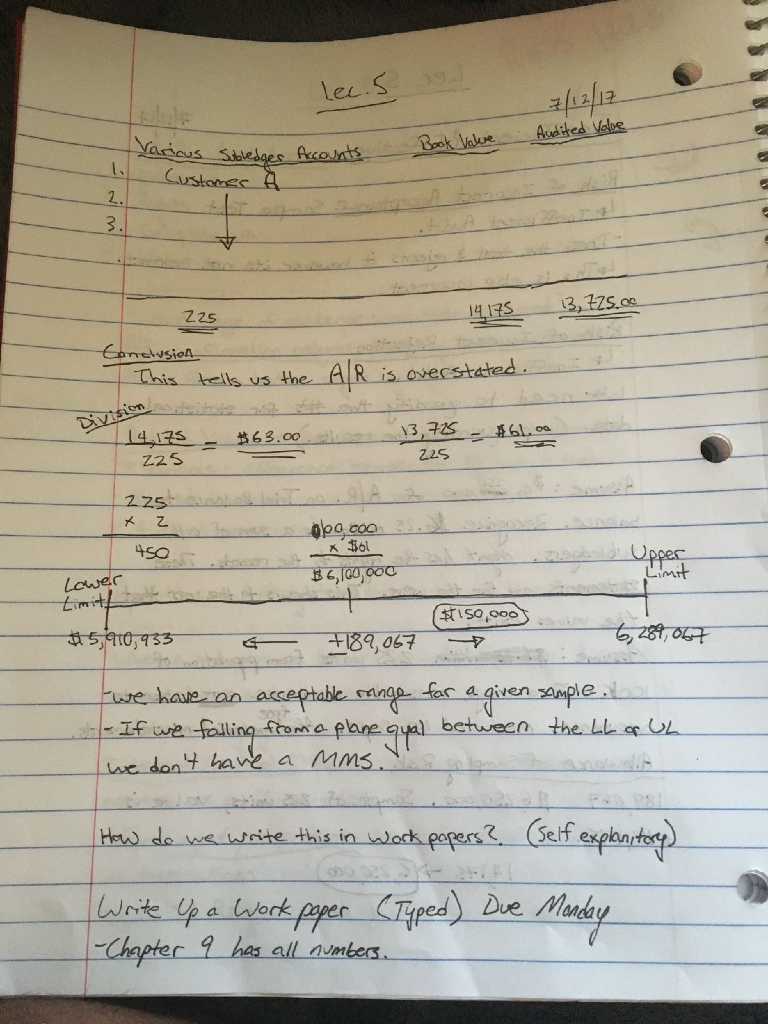 Lec. 5
7/12/17
Various Subledger Accounts Book Value Audited Value
1. Customer A
2.
3.
225 14,175 13,725.00
Conclusion
This tells us the A/R is overstated.
Division
14,175 / 225 = $63.00 13,725 / 225 = $61.00
225
x 2
450
100,000
x $61
$6,100,000
Lower Limit
Upper Limit
$150,000
$5,910,933 ← ±189,067 → 6,289,067
-we have an acceptable range for a given sample.
- If we falling from a plane between the LL or UL
we don't have a MMS.
How do we write this in work papers? (Self explanitory)
Write Up a Work paper (Typed) Due Monday
-Chapter 9 has all numbers.